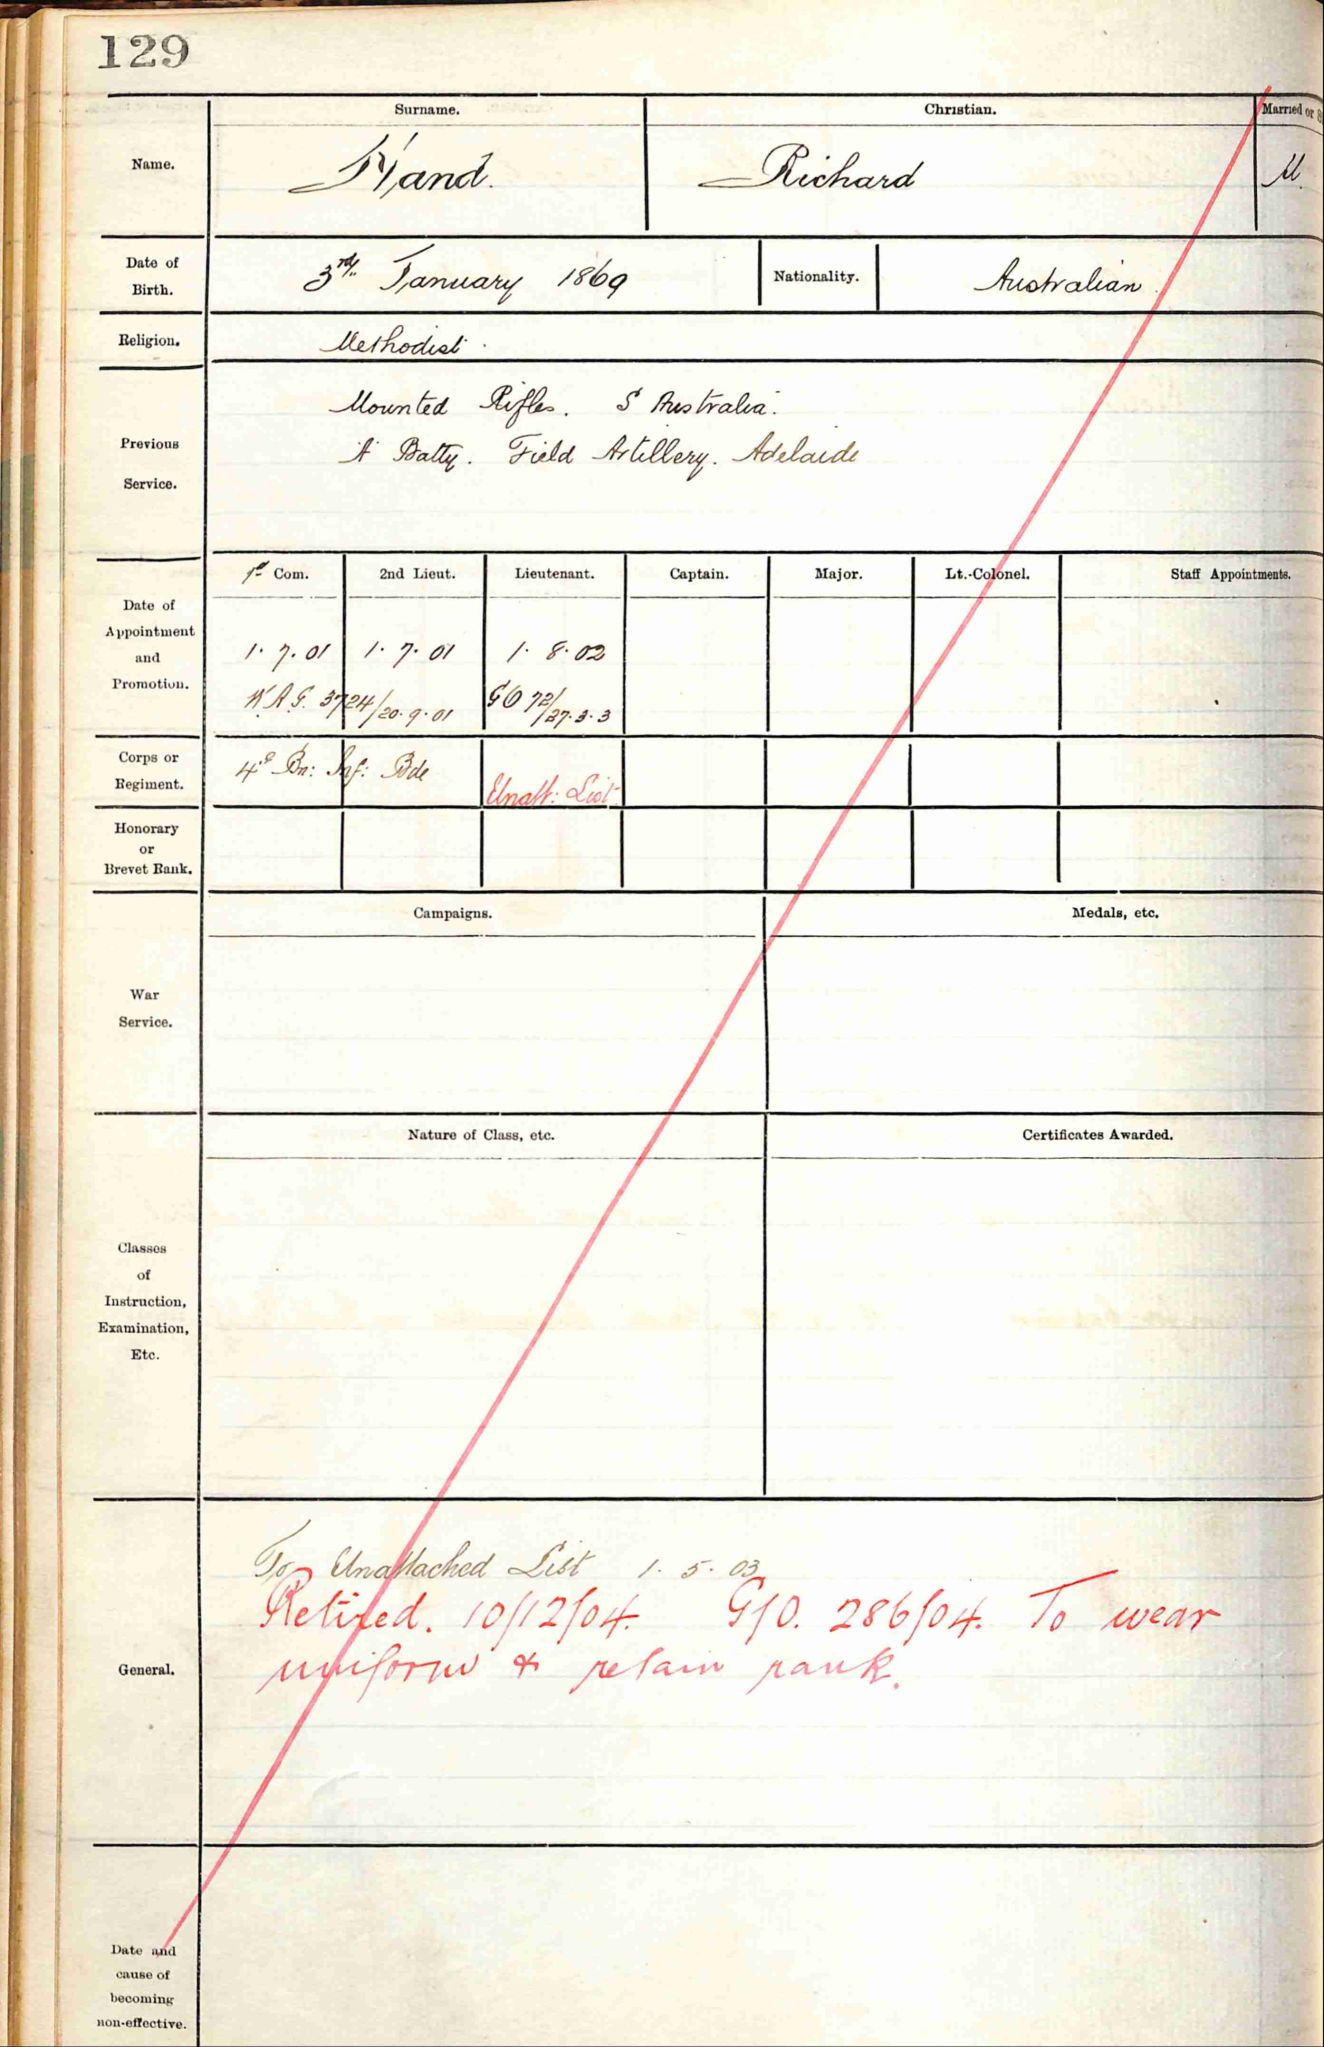 129
Surname. Christian. Married or
Name. Hand. Richard M.
Date of Birth. 3rd. January 1869 Nationality. Australian
Religion. Methodist.
Previous Service. Mounted Rifles. S Australia.
A Batty. Field Artillery. Adelaide
1st Com. 2nd Lieut. Lieutenant. Captain. Major. Lt.-Colonel. Staff Appointments.
Date of Appointment and Promotion. 1. 7. 01 1. 7. 01 1. 8. 02
W.A.G. 3724/20.9.01 GO 72/27.3.3
Corps or Regiment. 4th Bn: Inf: Bde Unatt: List
Honorary or Brevet Rank.
Campaigns. Medals, etc.
War Service.
Nature of Class, etc. Certificates Awarded.
Classes of Instruction, Examination, Etc.
To Unattached List 1. 5. 03
Retired. 10/12/04. G/O. 286/04. To wear
General. uniform & retain rank.
Date and cause of becoming non-effective.